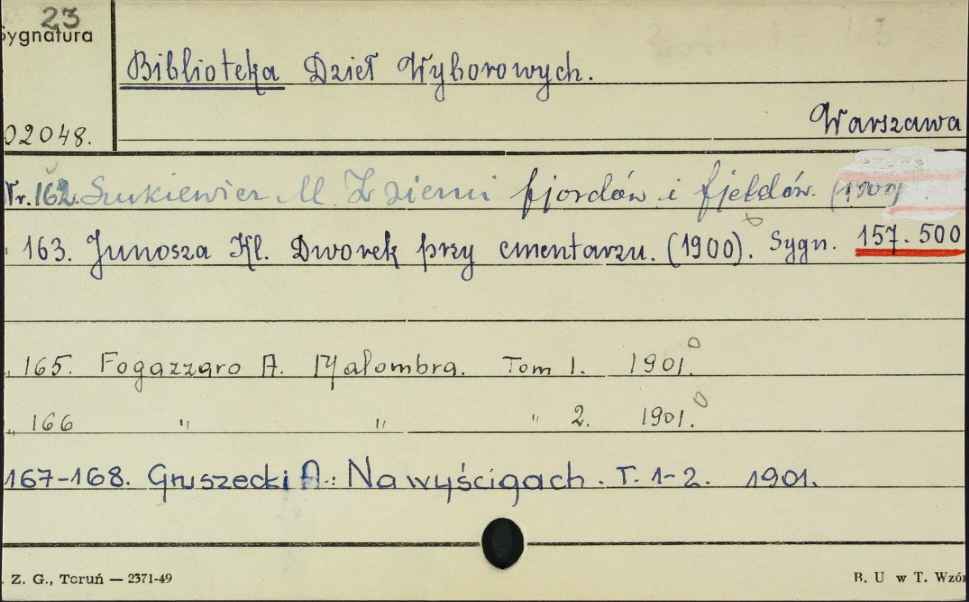 23
Sygnatura
Biblioteka Dzieł Wyborowych.
02048.
Warszawa
Nr. 162. Sukiewicz M Z ziemi fjordów i fjeldów. (1901)
" 163. Junosza Kl. Dworek przy cmentarzu. (1900). Sygn. 157.500
" 165. Fogazzaro A. Małombra. Tom 1. 1901.
" 166 " " " 2. 1901.
167-168. Gruszecki A.: Na wyścigach. T. 1-2. 1901.
Z. G., Toruń — 2371-49
B. U w T. Wzór